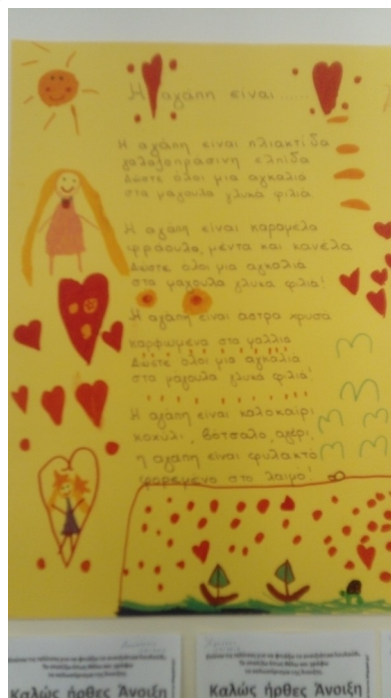 Η αγάπη είναι......
Η αγάπη είναι ηλιακτίδα
γαλαζοπράσινη ελπίδα
Δώστε όλοι μια αγκαλιά
στα μάγουλα γλυκά φιλιά
Η αγάπη είναι καραμέλα
φράουλα, μέντα και κανέλα
Δώστε όλοι μια αγκαλιά
στα μάγουλα γλυκά φιλιά!
Η αγάπη είναι άστρα χρυσά
καρφωμένα στα μαλλιά
Δώστε όλοι μια αγκαλιά
στα μάγουλα γλυκά φιλιά!
Η αγάπη είναι καλοκαίρι
κοχύλι, βότσαλο, αγέρι,
η αγάπη είναι φυλαχτό
φορεμένο στο λαιμό!
Καλώς ήρθες Άνοιξη
Καλώς ήρθες Άνοιξη